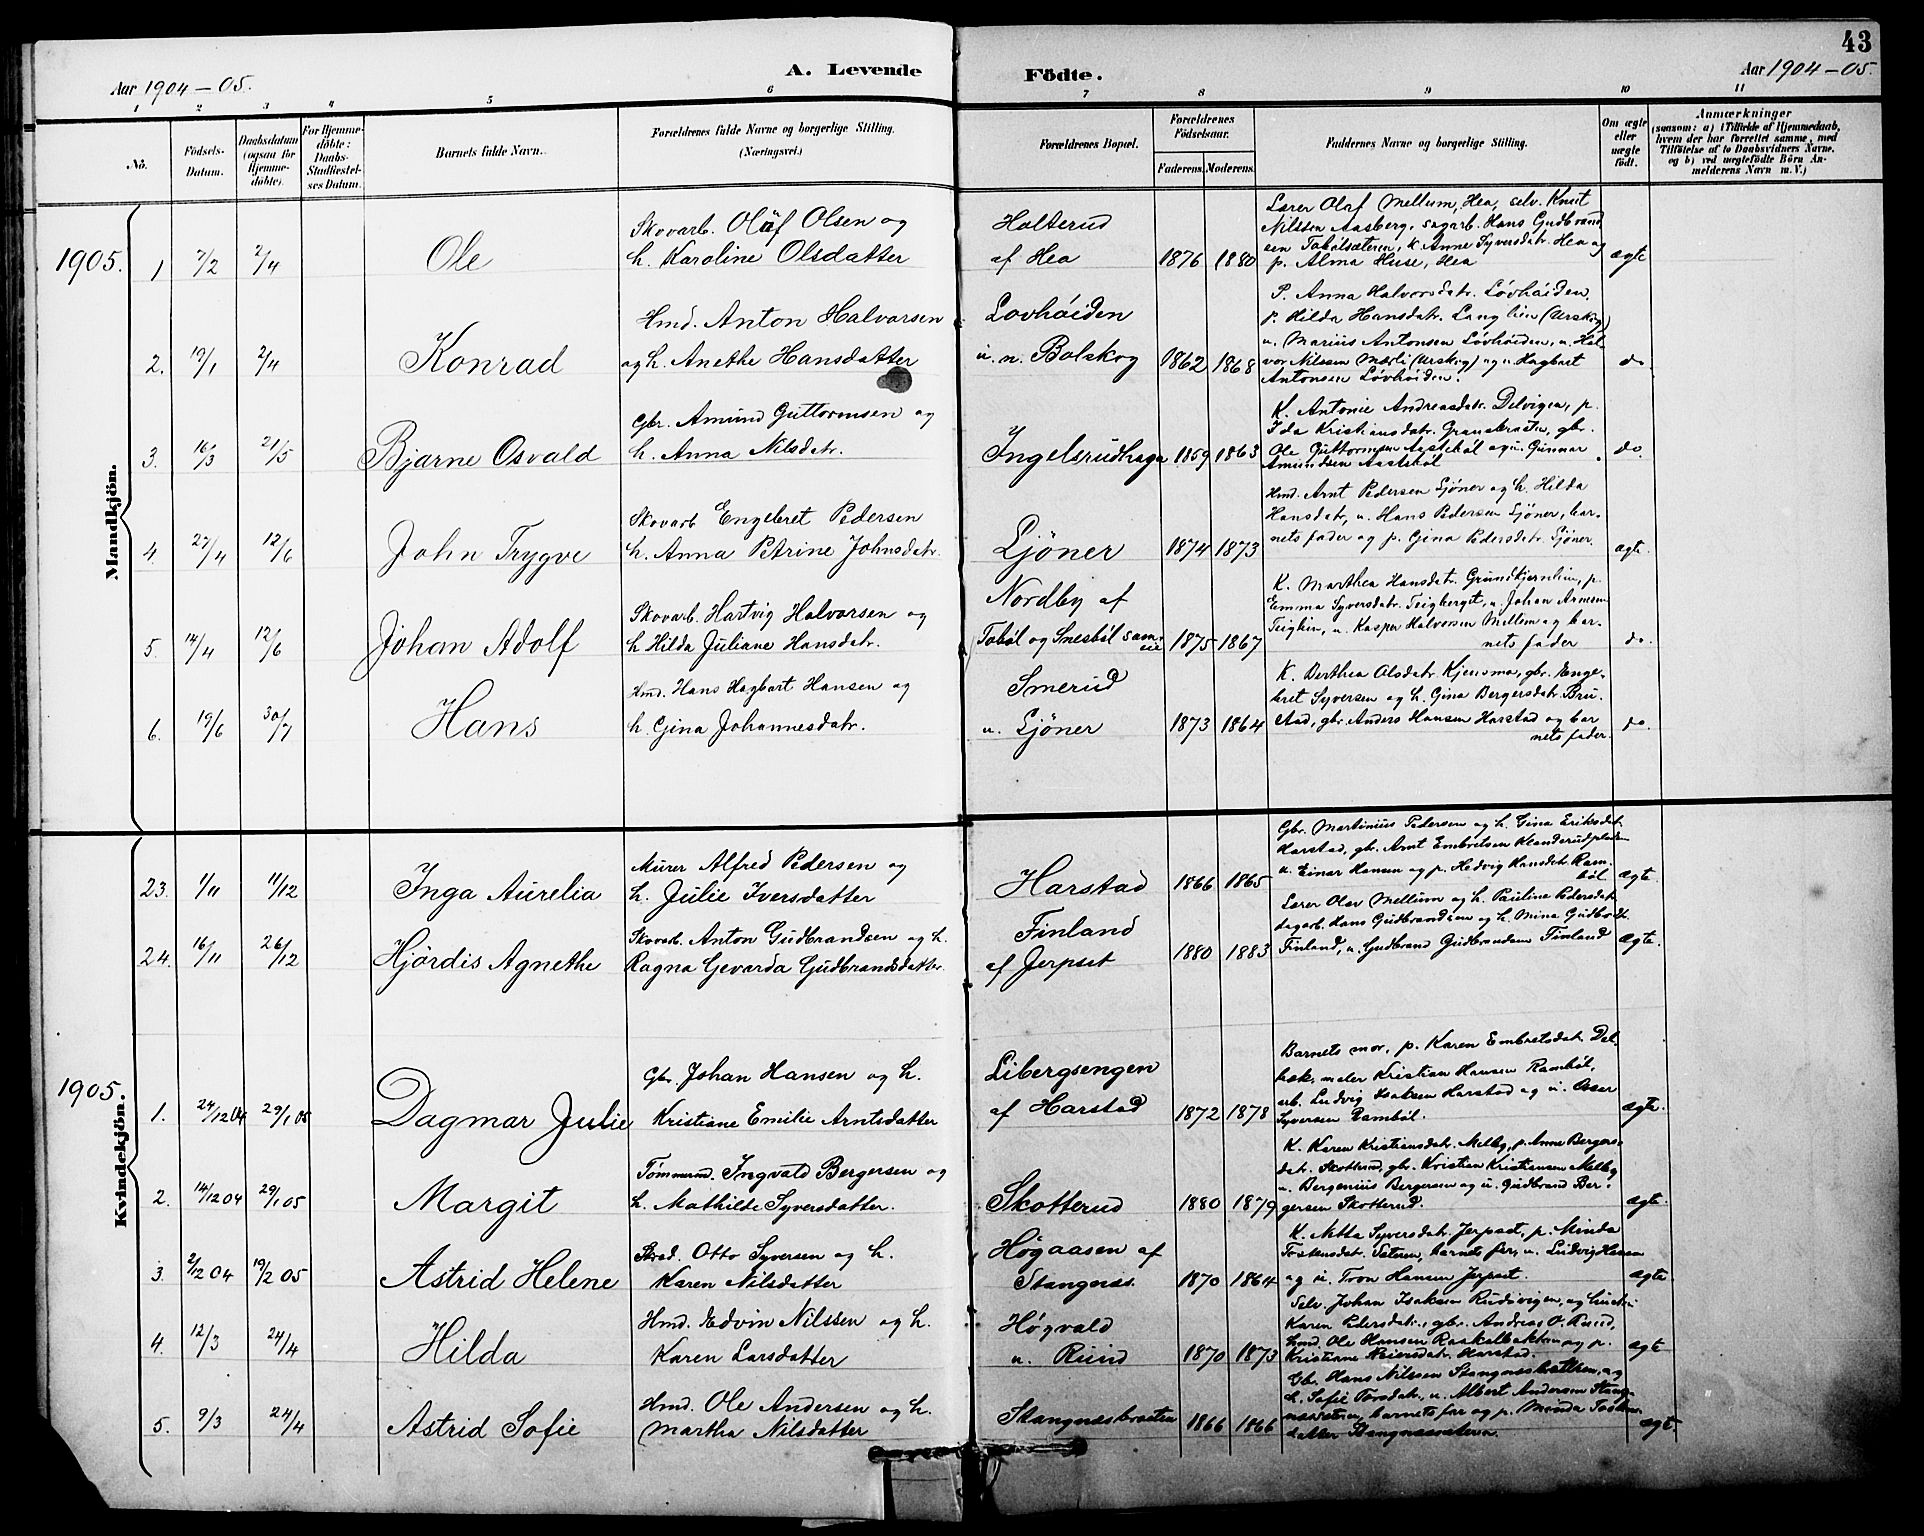 43
Aar 1904-05.
A. Levende Födte.
Aar 1904-05.
1 2 3 4 5 6 7 8 9 10 11
No.
Födsels-Datum.
Daabsdatum (ogsaa for Hjemmedöbte).
For Hjemmedöbte: Daabs-Stadfæstelses Datum.
Barnets fulde Navn.
Forældrenes fulde Navne og borgerlige Stilling.
(Næringsvei.)
Forældrenes Bopæl.
Forældrenes Födselsaar.
Faderens. Moderens.
Faddernes Navne og borgerlige Stilling.
Om ægte eller uægte födt.
Anmærkninger
(saasom: a) i Tilfælde af Hjemmedaab, hvem der har forrettet samme, med Tilföielse af to Daabsvidners Navne, og b) ved uægtefödte Börn Anmelderens Navn m. V.)
Mandkjön.
1905.
1 7/2 2/4 Ole
Skovarb. Olaf Olsen og
h. Karoline Olsdatter
Holterud
af Hea
1876 1880
Lærer Olaf Mellum, Hea, selv. Knut
Nilssen Aasberg, sagarb. Hans Gudbrand
sen Tobölsæteren, k. Anne Syversdatr. Hea og
p. Alma Huse, Hea
ægte
2. 19/1 2/4 Konrad
Hmd. Anton Halvorsen
og h. Anethe Hansdatter
Lovhöiden
u. n. Bolskog
1862 1868
P. Anna Halvorsdatr. Lövhöiden,
p. Hilda Hansdatr. Langlien (Urskog)
u. Marius Antonsen Lövhöiden, u. Hal
vor Nilssen Mærli (Urskog) og u. Hagbart
Antonsen Lövhöiden.
do.
3. 16/3 21/5 Bjarne Osvald
Gbr. Amund Guttormsen og
h. Anna Nilsdatr.
Ingelsrudhaga
1859 1863
K. Antonie Andreasdatr. Delvigen, p.
Ida Kristiansdatr. Granebraaten, gbr.
Ole Guttormsen Aasteböl og u. Gunnar
Amundsen Aasteböl
do.
4. 27/4 12/6 John Trygve
Skovarb Engebret Pedersen
h. Anna Petrine Johnsdatr.
Ljöner
1874 1873
Hmd. Arnt Pedersen Ljöner og h. Hilda
Hansdatr, u. Hans Pedersen Ljöner, bar-
nets fader og p. Gina Pedersdatr. Ljöner.
ægte.
5. 14/4 12/6 Johan Adolf
Skovarb. Hartvig Halvorsen og
h Hilda Juliane Hansdatr.
Nordby af
Toböl og Snesböl sam-
eie
1875 1867
K. Marthea Hansdatr. Grundtjernlien, p.
Emma Syversdatr. Teigberget, u. Johan Arnesen
Teiglien, u. Kasper Halvorsen Mellem og bar-
nets fader
do.
6. 19/6 30/7 Hans
Hmd. Hans Hagbart Hansen og
h. Gina Johannesdatr.
Smerud
u. Ljöner
1873 1864
K. Berthea Olsdatr. Kjensmo, gbr. Enge-
bret Syversen og h. Gina Bergersdatr. Bru-
stad, gbr. Anders Hansen Harstad og bar
nets fader.
do.
Kvindekjön.
23. 1/11 11/12 Inga Aurelia
Murer Alfred Pedersen og
h. Julie Iversdatter
Harstad
1866 1865
Gbr. Martinius Pedersen og h. Gina Eriksdat.
Harstad, gbr. Arnt Embretsen Klanderudpladsen
u. Einar Hansen og p. Hedvig Hansdatr. Ram-
böl
ægte.
24. 16/11 26/12 Hjördis Agnethe
Skovarb. Anton Gudbrandsen og h.
Ragna Gevarda Gudbrandsdatter.
Finland
af Jerpset
1880 1883
Lærer Olav Mellum og h. Pauline Pedersdatr.
dagarb. Hans Gudbrandsen og h. Mina Gudbrdt.
Finland, u. Gudbrand Gudbrandsen Finland
Ægte.
1905.
1. 24/12 04 29/1 05 Dagmar Julie
Gbr. Johan Hansen og h.
Kristiane Emilie Arntsdatter
Libergsengen
af Harstad
1872 1878
Barnets mor, p. Karen Embretsdatr. Del-
bæk, maler Kristian Hansen Ramböl,
arb. Ludvig Isaksen Harstad og u. Osvar
Syversen Ramböl.
ægte.
2. 14/12 04 29/1 05 Margit
Tömmermd. Ingvald Bergersen og
h. Mathilde Syversdatter.
Skotterud
1880 1879
K. Karen Kristiansdatr. Melby, p. Anne Bergers-
datr. Skotterud, gbr. Kristian Kristiansen Melby
u. Bergenius Bergersen og u. Gudbrand Ber-
gersen Skotterud.
ægte.
3. 2/12 04 19/2 05 Astrid Helene
Otto Syversen og h.
Karen Nilsdatter
Högaasen af
Stangnæs.
1870 1864
K. Netta Syversdatr. Jerpset, p. Minda
Torstensdatr. Sætern, barnets far, u. Ludvig Hansen
og u. Tron Hansen Jerpset.
ægte
4. 12/3 24/4 Hilda
Hmd. Edvin Nilssen og h.
Karen Larsdatter
Högvald
u. Ruud
1870 1873
Selv. Johan Isaksen Rudsvigen, og hustru
Karen Pedersdatr., gbr. Andreas O. Ruud,
hmd. Ole Hansen Raakalbakken og p.
Kristiane Reiersdatr. Harstad.
ægte
5. 9/3 24/4 Astrid Sofie
Hmd. Ole Andersen og h.
Martha Nilsdatter
Stangnæsbraaten
1866 1866
Gbr. Hans Nilssen Stangnæsbakken, og
h. Sofie Torsdatr., u. Albert Andersen Stang-
næssætern, barnets far og p. Minda Torstens-
datter Stangnæssætern.
ægt.